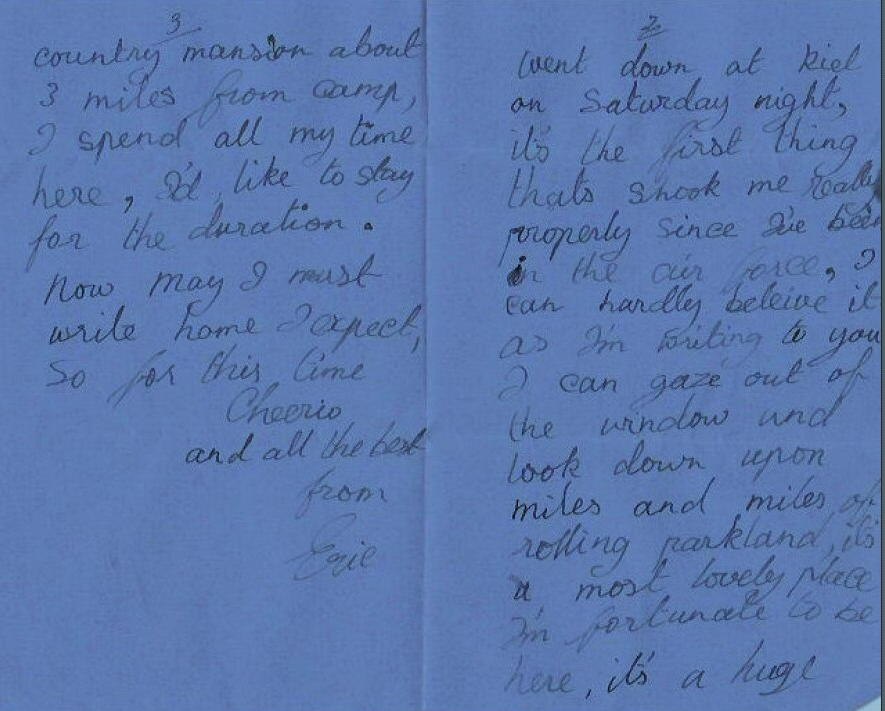 2
went down at Kiel
on Saturday night,
it's the first thing
thats shook me really
properly since I've been
in the air force, I
can hardly beleive it
as I'm writing to you
I can gaze out of
the window and
look down upon
miles and miles of
rolling parkland, it's
a most lovely place
I'm fortunate to be
here, it's a huge
3
country mansion about
3 miles from camp,
I spend all my time
here, I'd like to stay
for the duration.
Now May I must
write home I expect,
so for this time
Cheerio
and all the best
from
Eric